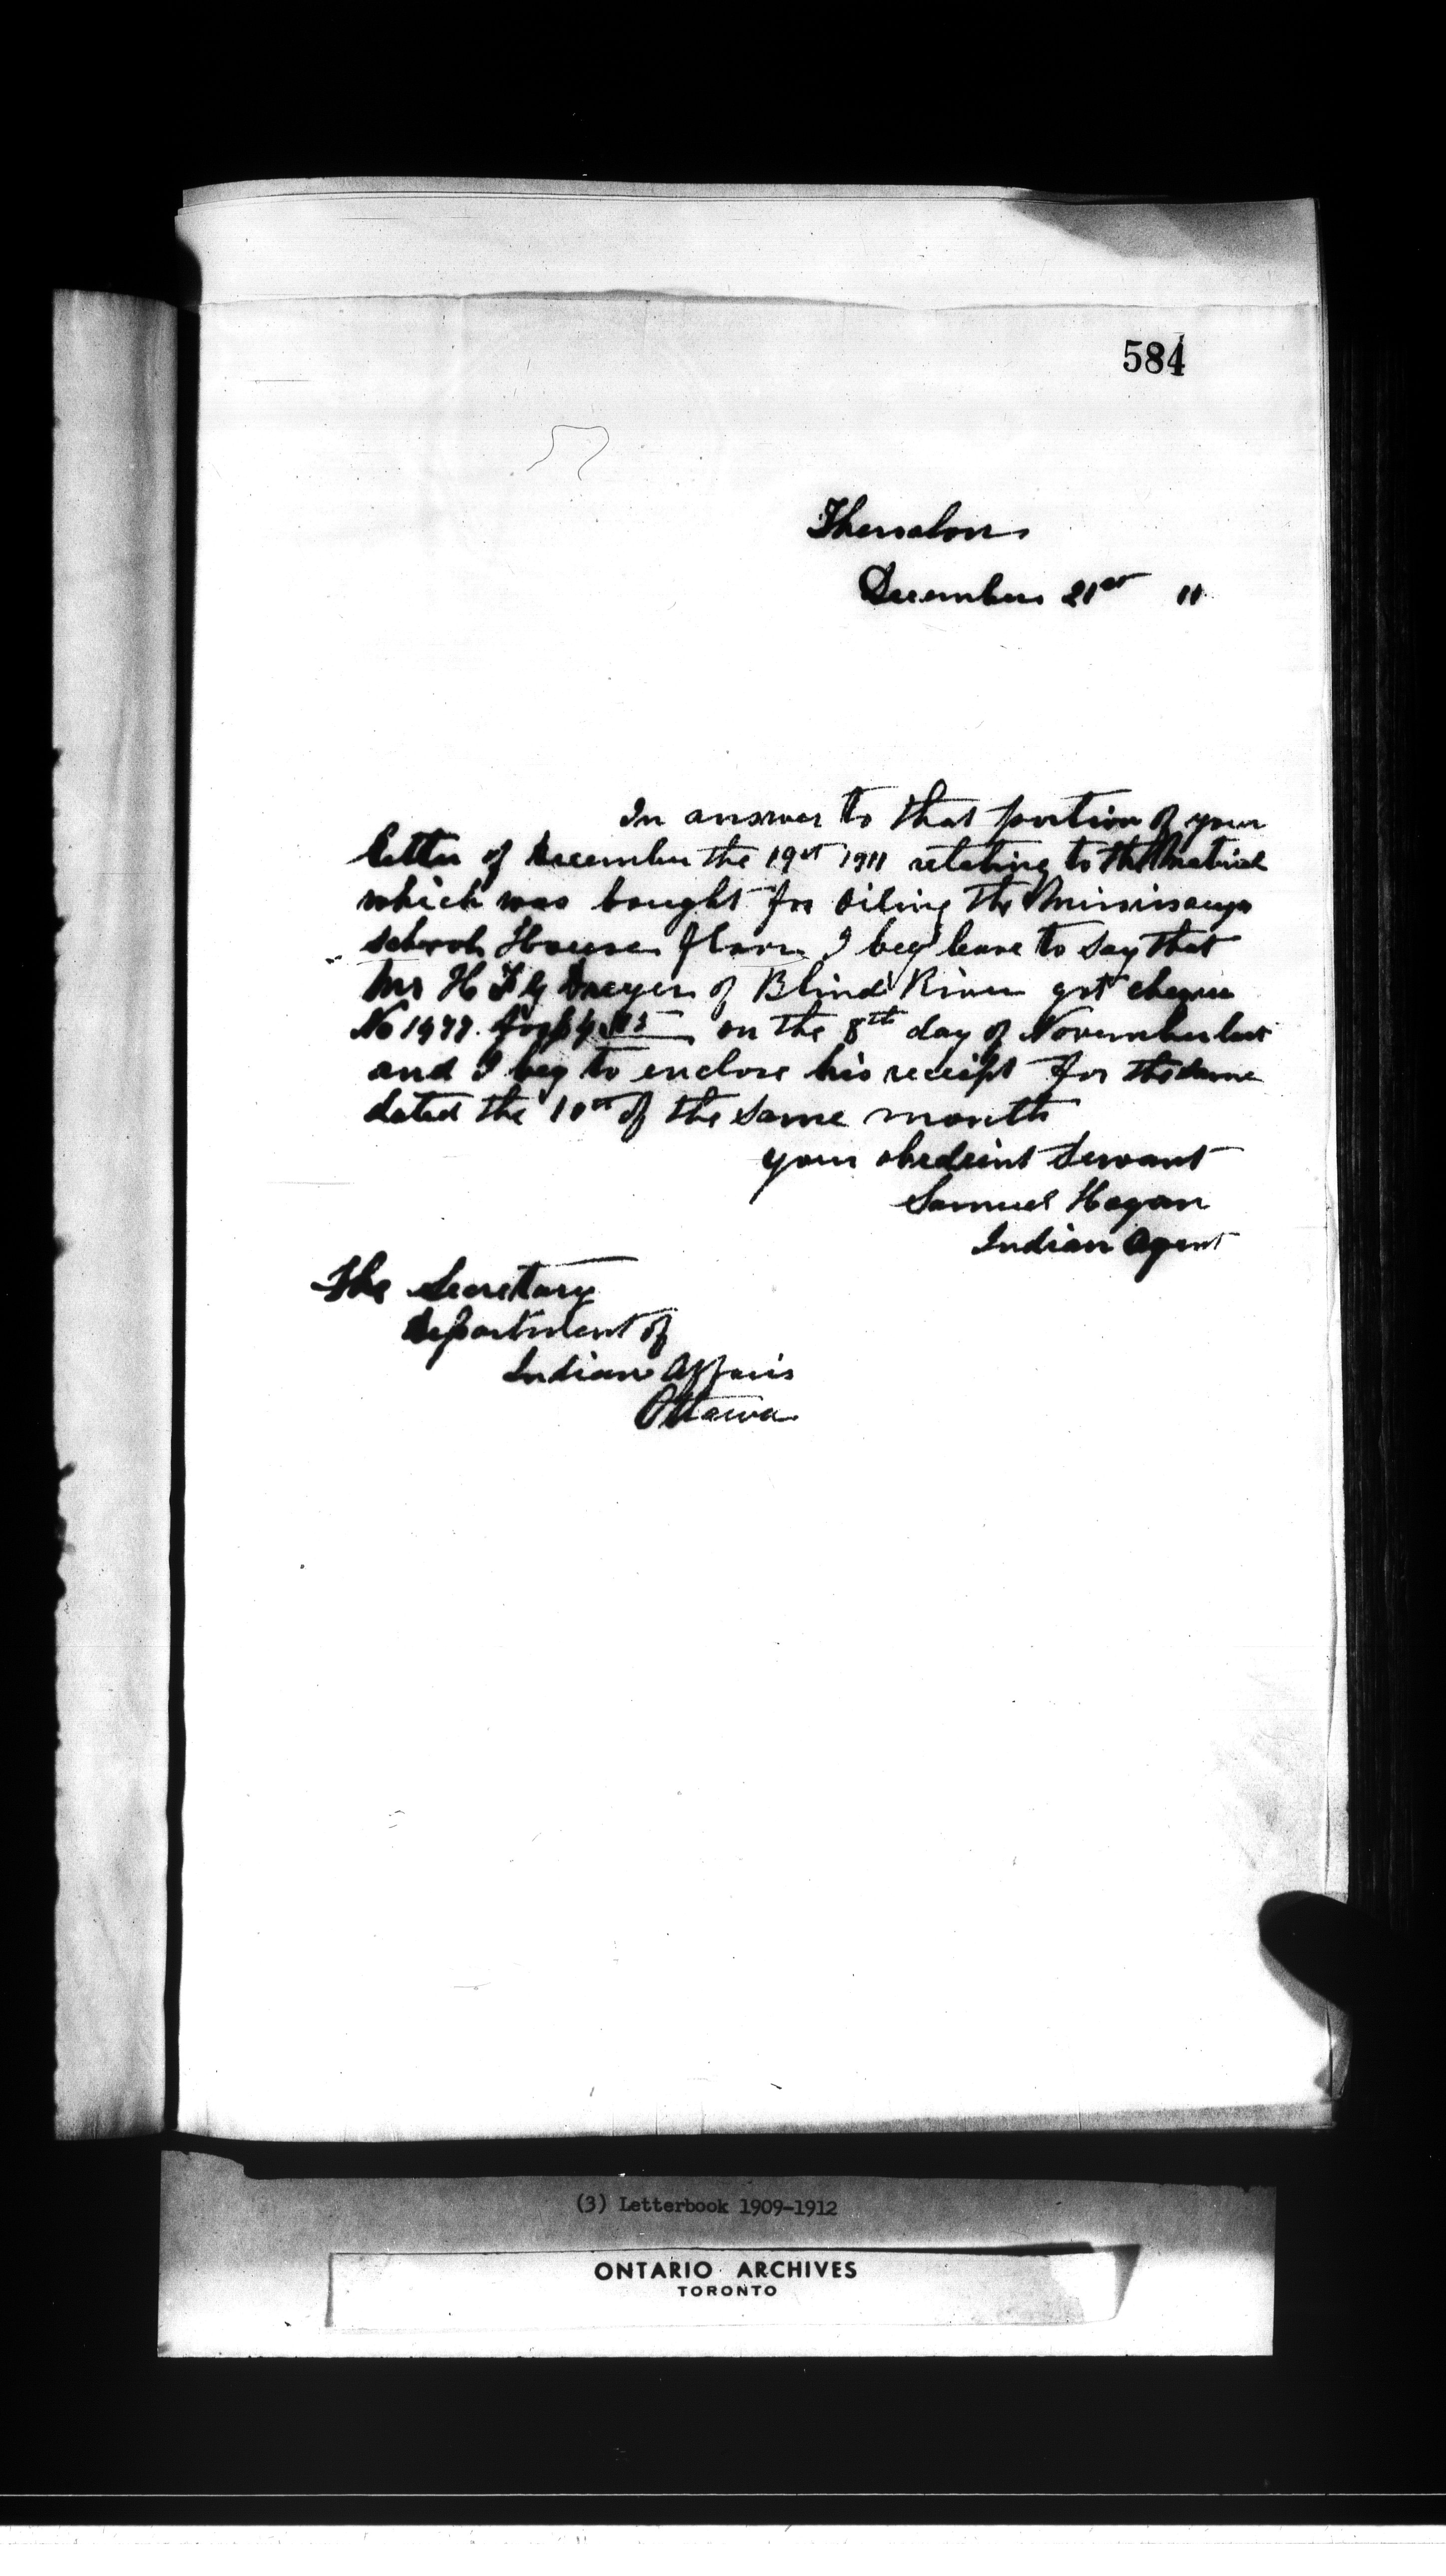 584
Thessalon
December 21st 11
In answer to that portion of your
letter of December the 19st 1911 relating to the material
which was bought for oiling the Mississauga
school House floor I beg leave to say that
Mr H F G Dreyer of Blind River got cheque
No 1977 for on the 8th day of November last
and I beg to enclose his receipt for the same
dated the 10th of the same month
your obedeint Servant
Samuel Hagan
Indian Agent
The Secretary
Department of
Indian Affairs
Ottawa
(3) Letterbook 1909-1912
ONTARIO ARCHIVES
TORONTO